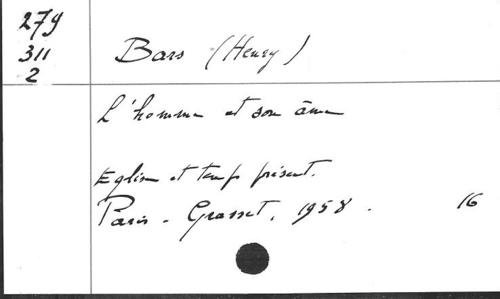 279
311
2
Bars (Henry)
L'homme et son âme
Eglise et temps présent.
Paris - Grasset, 1958. 16